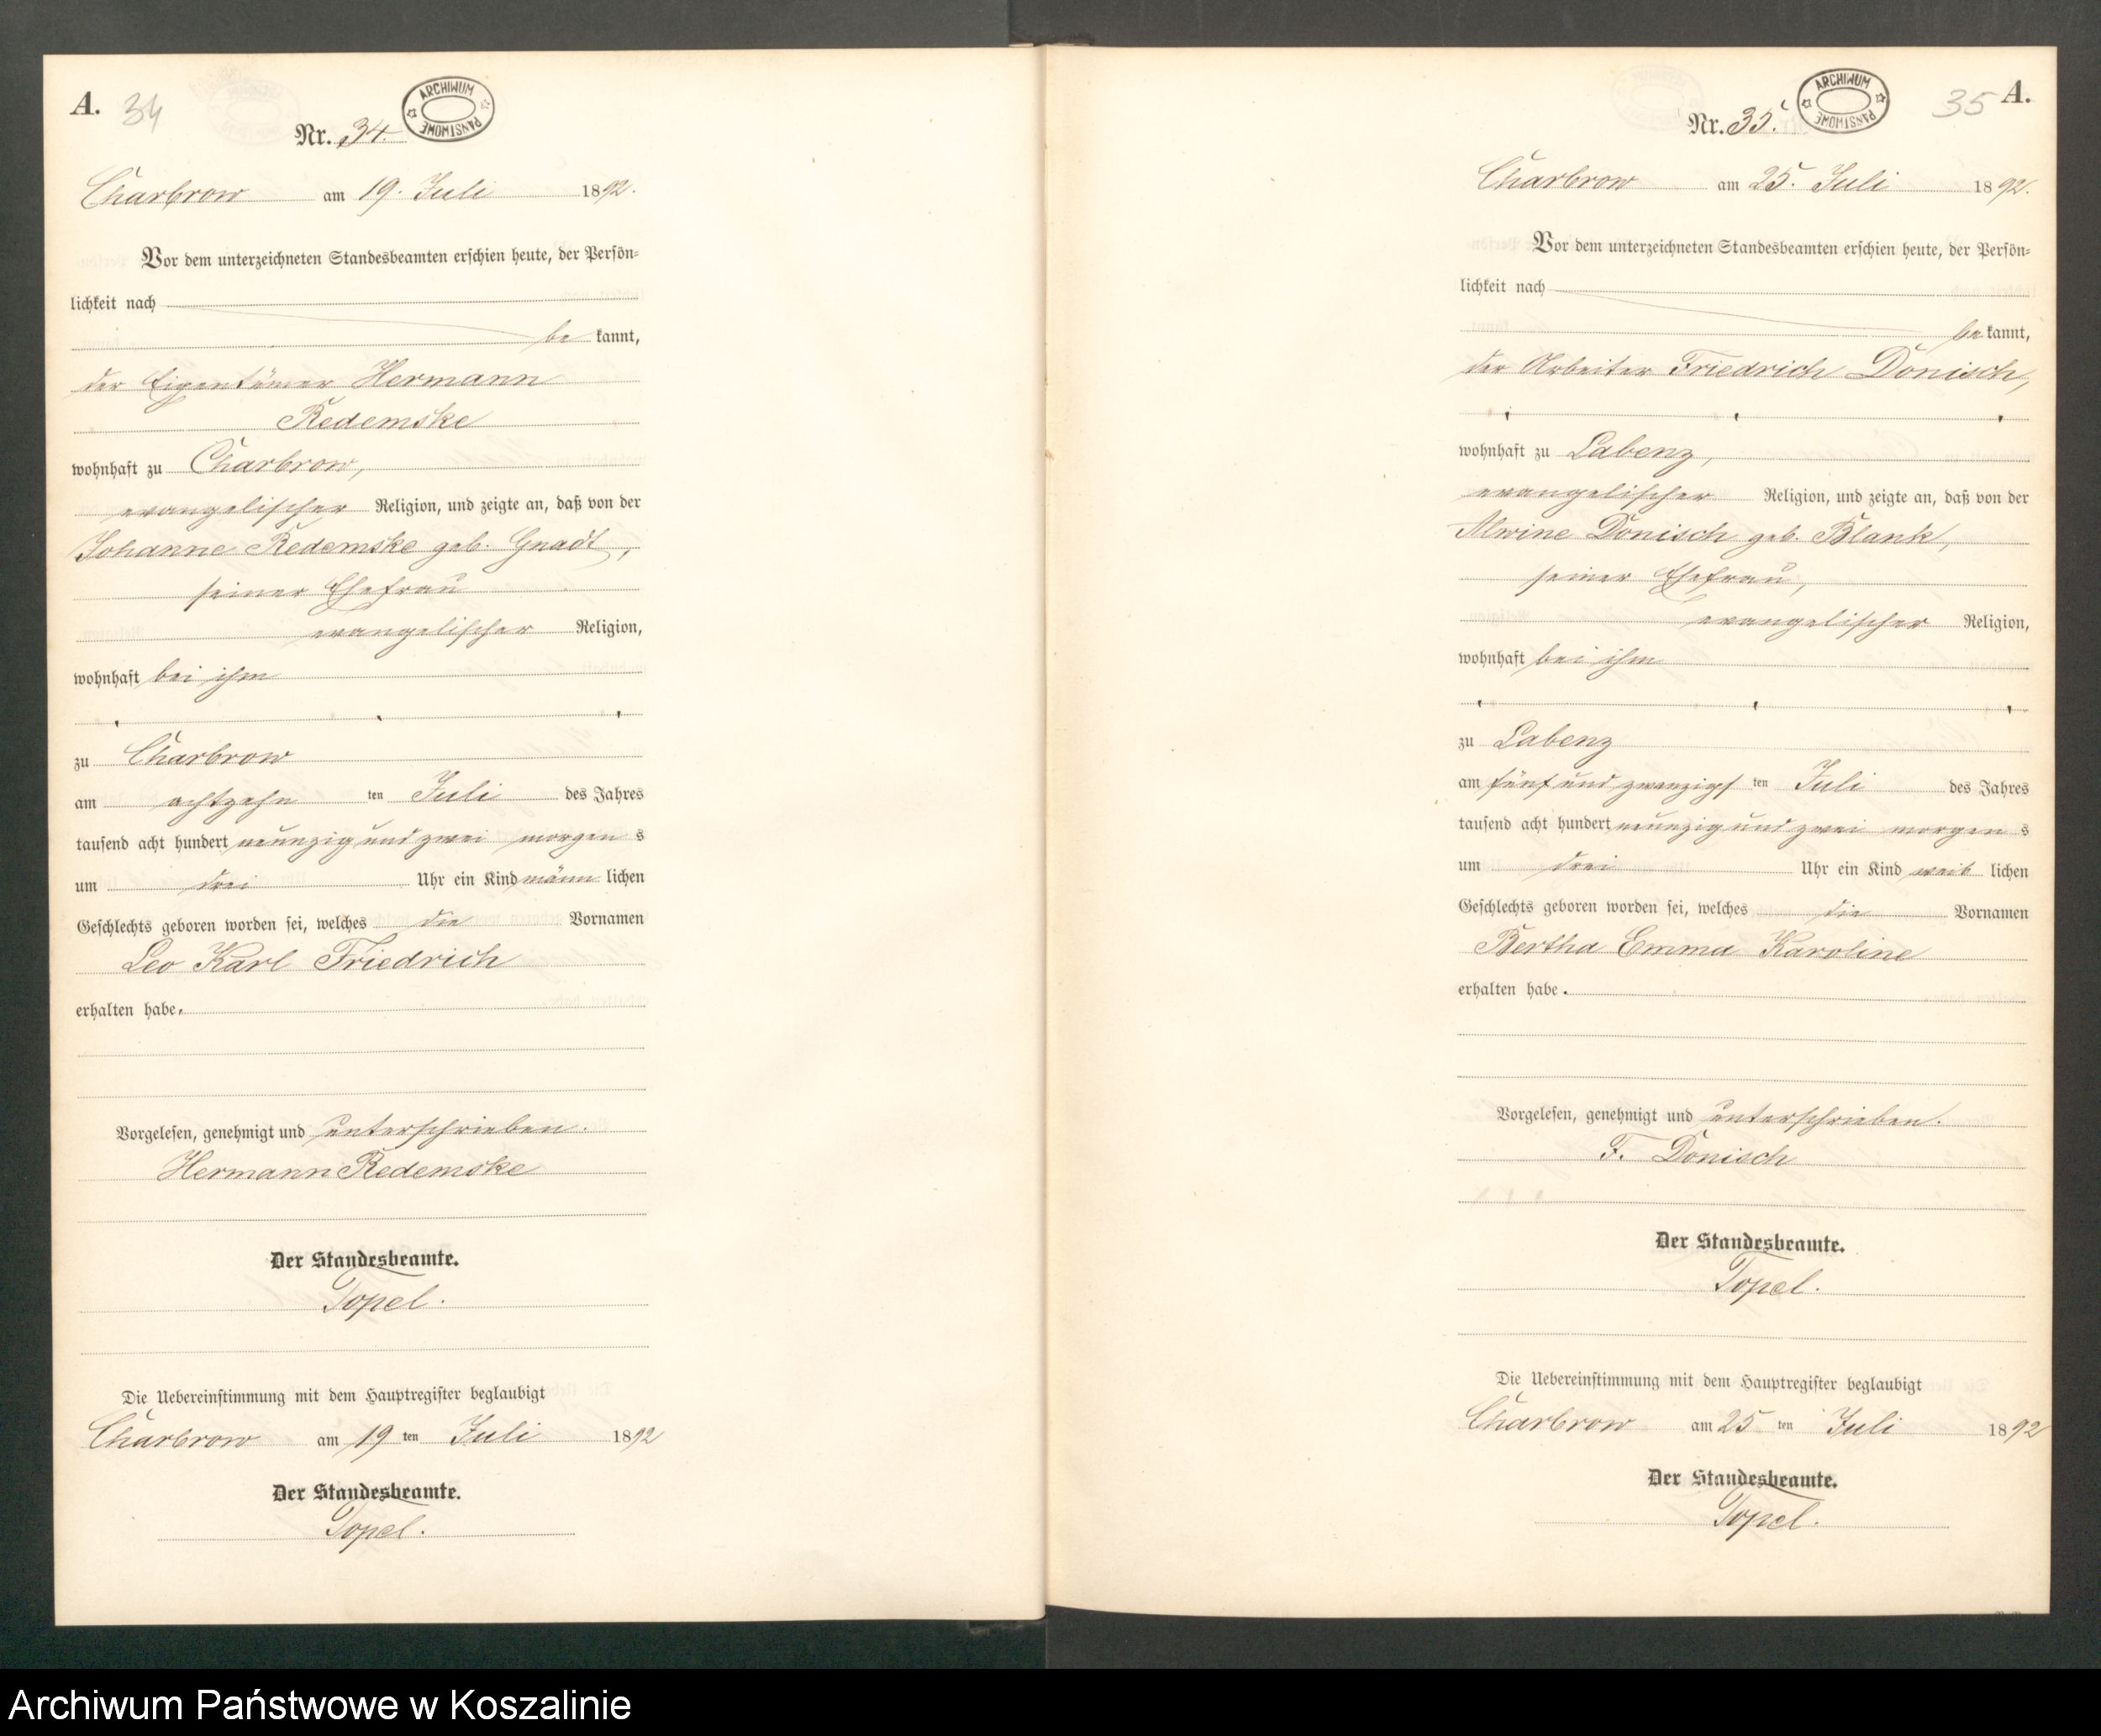 A. 34
ARCHIWUM
PAŃSTWOWE
Nr. 34.
Charbrow am 19. Juli 1892.
Vor dem unterzeichneten Standesbeamten erschien heute, der Persön-
lichkeit nach
be kannt,
der Eigentümer Hermann
Redemske
wohnhaft zu Charbrow,
evangelischer Religion, und zeigte an, daß von der
Johanne Redemske geb. Gnadt,
seiner Ehefrau
evangelischer Religion,
wohnhaft bei ihm
zu Charbrow
am achtzehn ten Juli des Jahres
tausend acht hundert neunzig und zwei morgen s
um drei Uhr ein Kind männ lichen
Geschlechts geboren worden sei, welches die Vornamen
Leo Karl Friedrich
erhalten habe.
Vorgelesen, genehmigt und unterschrieben.
Hermann Redemske
Der Standesbeamte.
Topel.
Die Uebereinstimmung mit dem Hauptregister beglaubigt
Charbrow am 19 ten Juli 1892
Der Standesbeamte.
Topel.
35 A.
ARCHIWUM
PAŃSTWOWE
Nr. 35.
Charbrow am 25. Juli 1892.
Vor dem unterzeichneten Standesbeamten erschien heute, der Persön-
lichkeit nach
be kannt,
der Arbeiter Friedrich Donisch,
wohnhaft zu Labenz,
evangelischer Religion, und zeigte an, daß von der
Alwine Donisch geb. Blank,
seiner Ehefrau,
evangelischer Religion,
wohnhaft bei ihm
zu Labenz
am fünf und zwanzigs ten Juli des Jahres
tausend acht hundert neunzig und zwei morgen s
um drei Uhr ein Kind weib lichen
Geschlechts geboren worden sei, welches die Vornamen
Bertha Emma Karoline
erhalten habe.
Vorgelesen, genehmigt und unterschrieben.
F. Donisch
Der Standesbeamte.
Topel.
Die Uebereinstimmung mit dem Hauptregister beglaubigt
Charbrow am 25 ten Juli 1892
Der Standesbeamte.
Topel.
Archiwum Państwowe w Koszalinie